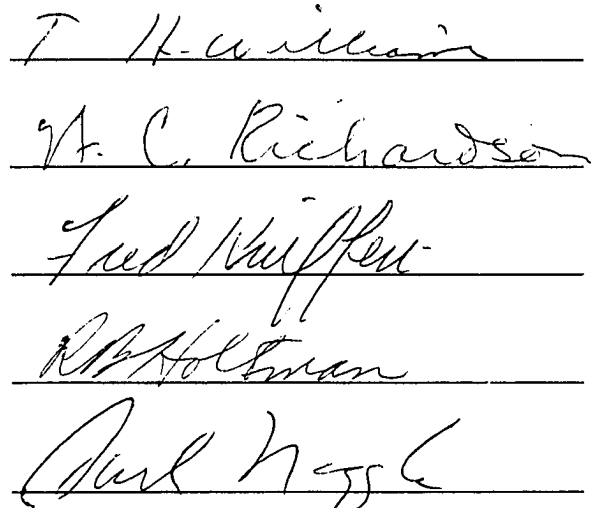 T H. Williams
H. C. Richardson
Fred Kniffen
R B Holtman